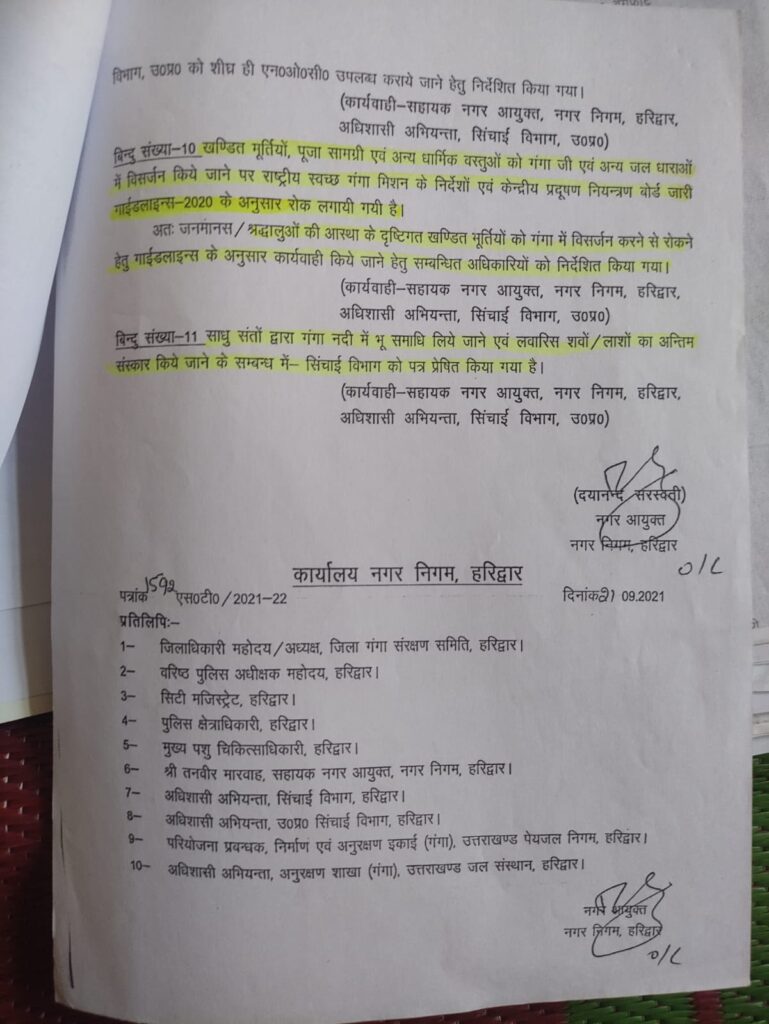 विभाग, उ0प्र0 को शीघ्र ही एन0ओ0सी0 उपलब्ध कराये जाने हेतु निर्देशित किया गया।
(कार्यवाही–सहायक नगर आयुक्त, नगर निगम, हरिद्वार,
अधिशासी अभियन्ता, सिंचाई विभाग, उ0प्र0)
बिन्दु संख्या–10 खण्डित मूर्तियों, पूजा सामग्री एवं अन्य धार्मिक वस्तुओं को गंगा जी एवं अन्य जल धाराओं
में विसर्जन किये जाने पर राष्ट्रीय स्वच्छ गंगा मिशन के निर्देशों एवं केन्द्रीय प्रदूषण नियन्त्रण बोर्ड जारी
गाईडलाइन्स–2020 के अनुसार रोक लगायी गयी है।
अतः जनमानस/श्रद्धालुओं की आस्था के दृष्टिगत खण्डित मूर्तियों को गंगा में विसर्जन करने से रोकने
हेतु गाईडलाइन्स के अनुसार कार्यवाही किये जाने हेतु सम्बन्धित अधिकारियों को निर्देशित किया गया।
(कार्यवाही–सहायक नगर आयुक्त, नगर निगम, हरिद्वार,
अधिशासी अभियन्ता, सिंचाई विभाग, उ0प्र0)
बिन्दु संख्या–11 साधु संतों द्वारा गंगा नदी में भू समाधि लिये जाने एवं लवारिस शवों/लाशों का अन्तिम
संस्कार किये जाने के सम्बन्ध में– सिंचाई विभाग को पत्र प्रेषित किया गया है।
(कार्यवाही–सहायक नगर आयुक्त, नगर निगम, हरिद्वार,
अधिशासी अभियन्ता, सिंचाई विभाग, उ0प्र0)
(दयानन्द सरस्वती)
नगर आयुक्त
नगर निगम, हरिद्वार
O/C
कार्यालय नगर निगम, हरिद्वार
पत्रांक 1592 एस0टी0/2021–22 दिनांक 21 09.2021
प्रतिलिपिः–
1– जिलाधिकारी महोदय/अध्यक्ष, जिला गंगा संरक्षण समिति, हरिद्वार।
2– वरिष्ठ पुलिस अधीक्षक महोदय, हरिद्वार।
3– सिटी मजिस्ट्रेट, हरिद्वार।
4– पुलिस क्षेत्राधिकारी, हरिद्वार।
5– मुख्य पशु चिकित्साधिकारी, हरिद्वार।
6– श्री तनवीर मारवाह, सहायक नगर आयुक्त, नगर निगम, हरिद्वार।
7– अधिशासी अभियन्ता, सिंचाई विभाग, हरिद्वार।
8– अधिशासी अभियन्ता, उ0प्र0 सिंचाई विभाग, हरिद्वार।
9– परियोजना प्रबन्धक, निर्माण एवं अनुरक्षण इकाई (गंगा), उत्तराखण्ड पेयजल निगम, हरिद्वार।
10– अधिशासी अभियन्ता, अनुरक्षण शाखा (गंगा), उत्तराखण्ड जल संस्थान, हरिद्वार।
नगर आयुक्त
नगर निगम, हरिद्वार
O/C